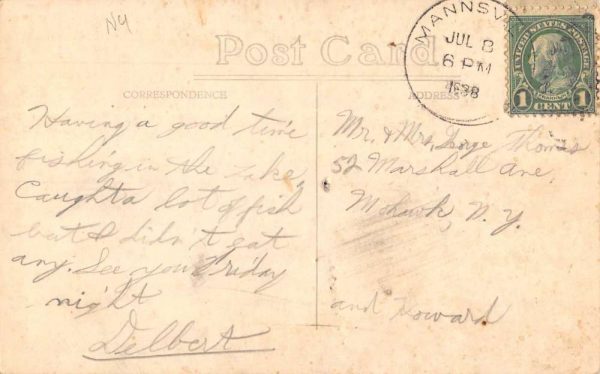 NY
Post Card
CORRESPONDENCE
ADDRESS
MANNSV
JUL 8
6 PM
1938
UNITED STATES POSTAGE
FRANKLIN
1 CENT 1
Having a good time
fishing in the Lake,
Caught a lot of fish
but I didn't eat
any. See you Friday
night
Delbert
Mr. & Mrs. George Thomas
52 Marshall Ave.
Mohawk, N.Y.
and Howard